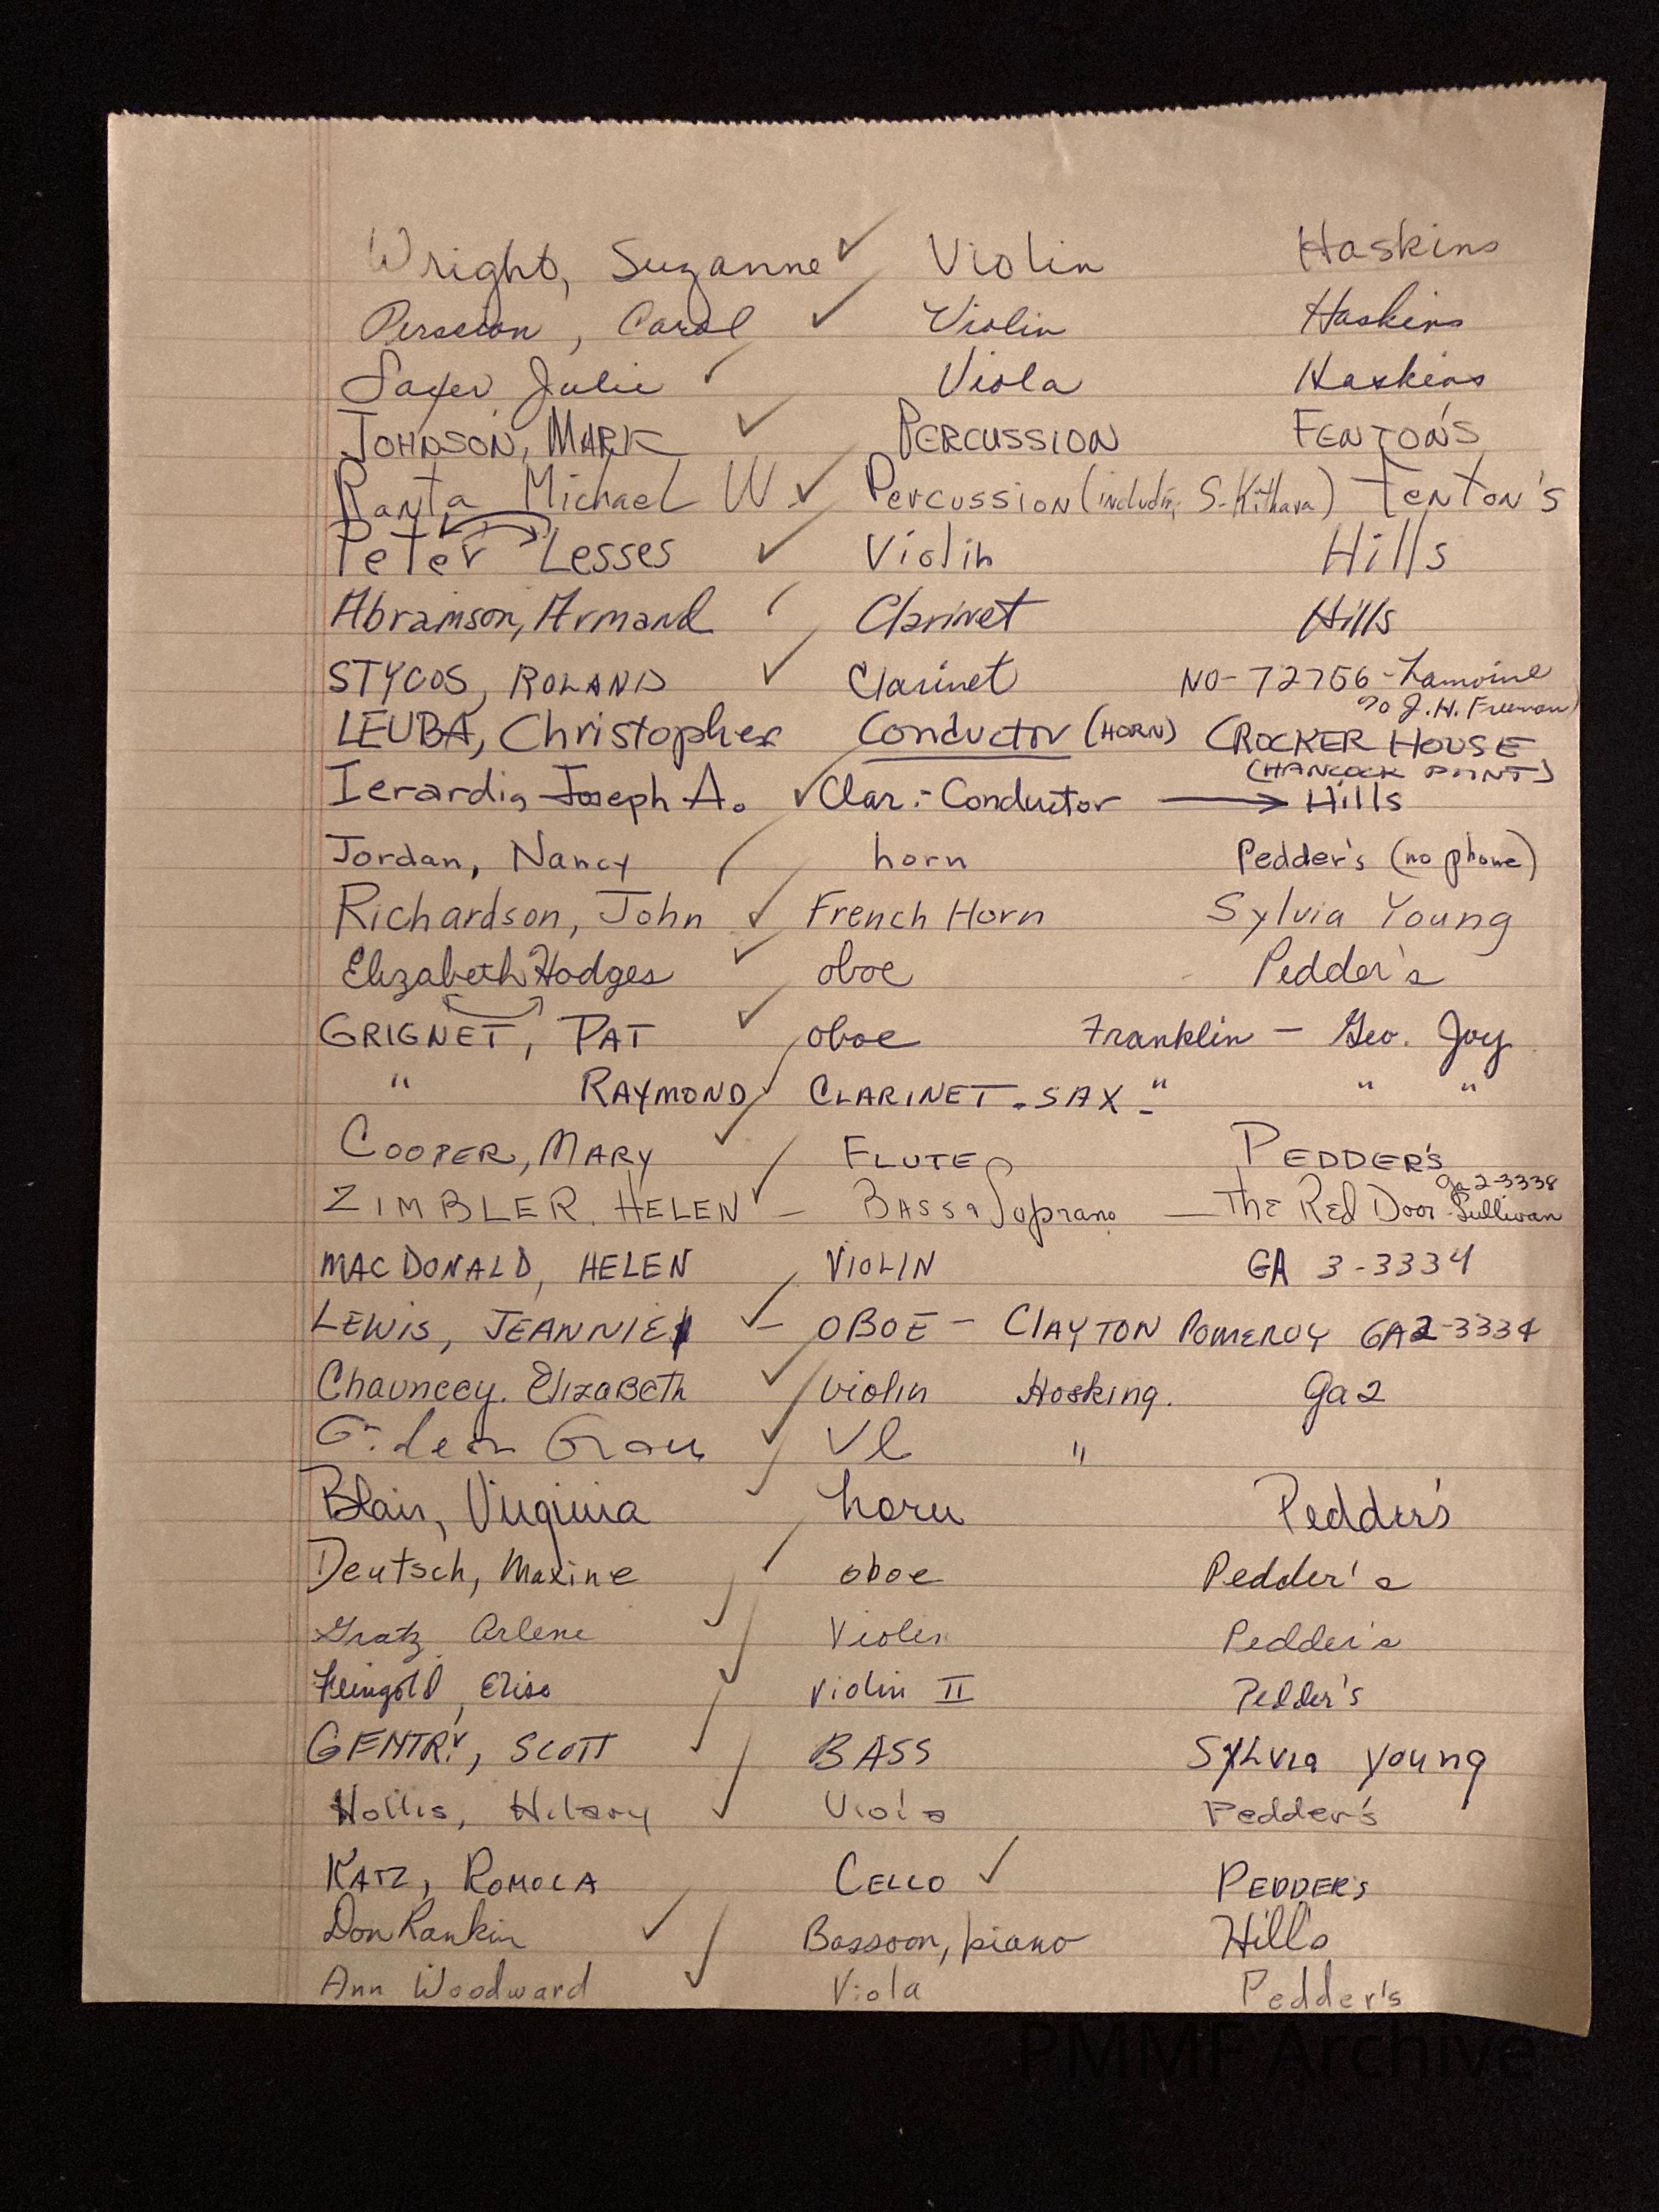 Wright, Suzanne ✓ Violin Haskins
Persson, Carol ✓ Violin Haskins
Sayer, Julie ✓ Viola Haskins
JOHNSON, MARK ✓ PERCUSSION FENTON'S
Ranta Michael W ✓ Percussion (includin, S-Kithara) Fenton's
Peter Lesses ✓ Violin Hills
Abramson, Armand ✓ Clarinet Hills
STYCOS, ROLAND ✓ Clarinet NO-72756-Lamoine
c/o J.H. Freeman
LEUBA, Christopher Conductor (HORN) CROCKER HOUSE
(HANCOCK POINT)
Ierardi, Joseph A. ✓ Clar.-Conductor → Hills
Jordan, Nancy ✓ horn Pedder's (no phone)
Richardson, John ✓ French Horn Sylvia Young
Elizabeth Hodges ✓ oboe Pedder's
GRIGNET, PAT ✓ oboe Franklin - Geo. Joy
" RAYMOND ✓ CLARINET-SAX-" " "
COOPER, MARY ✓ FLUTE PEDDER'S
Ga 2-3338
ZIMBLER, HELEN ✓ - BASS Soprano - The Red Door-Sullivan
MACDONALD, HELEN VIOLIN GA 3-3334
LEWIS, JEANNIE ✓ - OBOE - CLAYTON POMEROY GA2-3334
Chauncey. Elizabeth ✓ violin Hosking. Ga2
Gideon Grau ✓ Vl "
Blair, Virginia ✓ horn Pedder's
Deutsch, Maxine ✓ oboe Pedder's
Gratz, Arlene ✓ Violin Pedder's
Feingold, Elisa ✓ Violin II Pedder's
GENTRY, SCOTT ✓ BASS SYLVIA YOUNG
Hollis, Hilary ✓ Viola Pedder's
KATZ, ROMOLA CELLO ✓ PEDDER'S
Don Rankin ✓ Bassoon, piano Hills
Ann Woodward ✓ Viola Pedder's
PMMF Archive